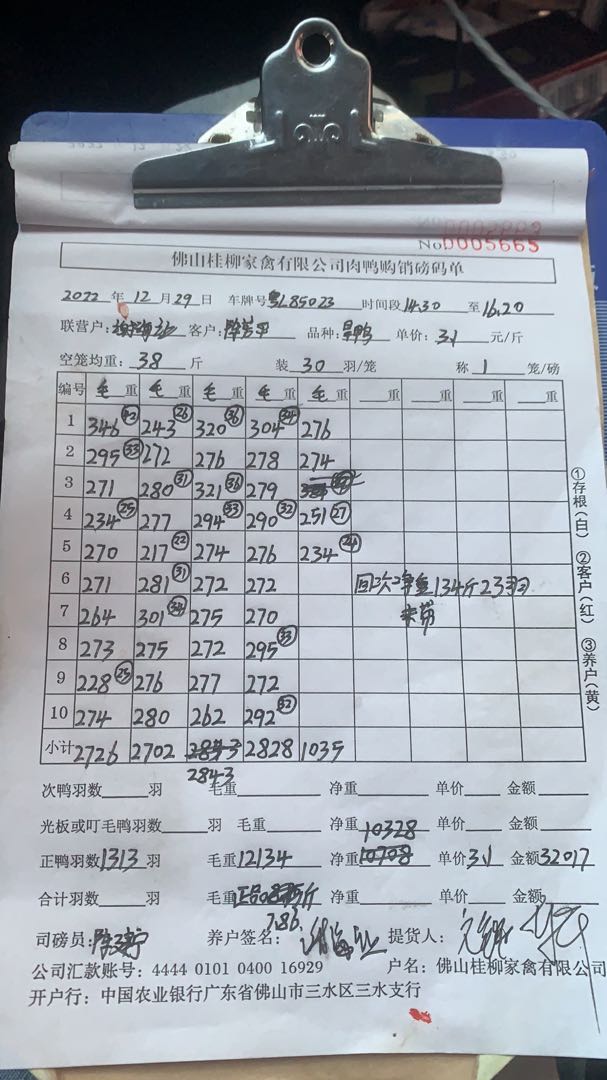 No 0005665
佛山桂柳家禽有限公司肉鸭购销磅码单
2022 年 12 月 29 日 车牌号 粤L85023 时间段 14.30 至 16.20
联营户: 客户: 品种: 旱鸭 单价: 3.1 元/斤
空笼均重: 38 斤 装 30 羽/笼 称 1 笼/磅
编号 毛重 毛重 毛重 毛重 毛重 重 重 重 重
1 346 243 26 320 36 304 34 276
2 295 33 272 276 278 274
3 271 280 31 321 36 279
4 234 25 277 294 33 290 32 251 27
5 270 217 22 274 276 234 24
6 271 281 31 272 272 134斤23羽
7 264 301 34 275 270
8 273 275 272 295 33
9 228 23 276 277 272
10 274 280 262 292 32
小计 2726 2702 2843 2828 1035
2843
次鸭羽数 羽 毛重 净重 单价 金额
光板或叮毛鸭羽数 羽 毛重 净重 10328 单价 金额
正鸭羽数 1313 羽 毛重 12134 净重 10708 单价 3.1 金额 32017
合计羽数 羽 毛重 净重 单价 金额
7.86
司磅员: 养户签名: 提货人:
公司汇款账号: 4444 0101 0400 16929 户名: 佛山桂柳家禽有限公司
开户行: 中国农业银行广东省佛山市三水区三水支行
①存根(白) ②客户(红) ③养户(黄)